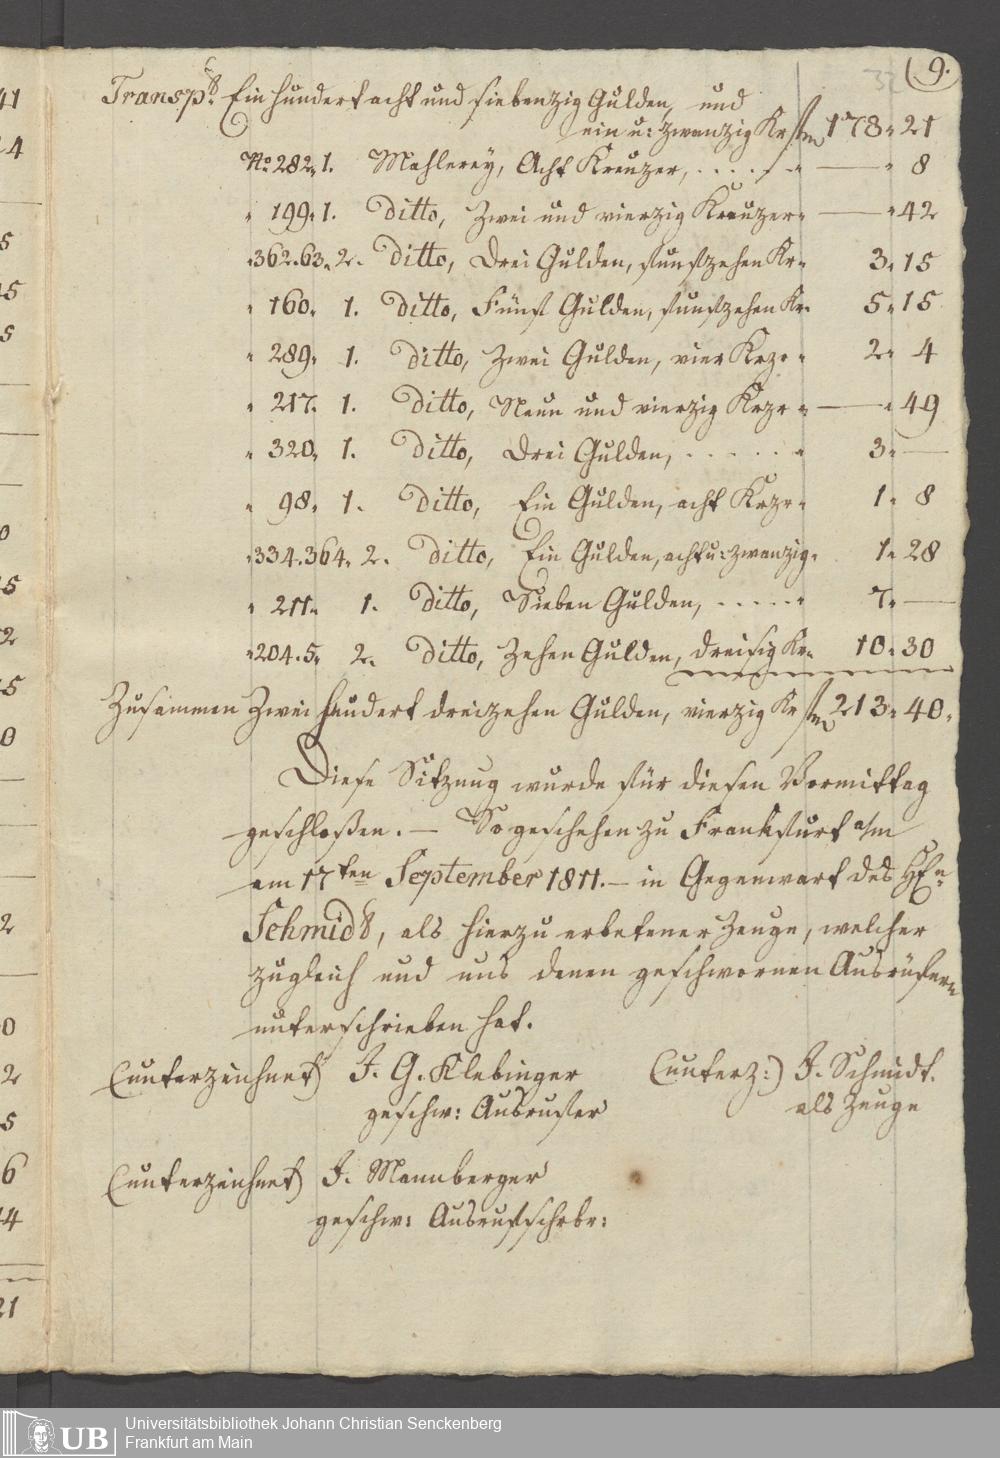 32 (9.
Transpt. Ein hundert acht und siebenzig Gulden, und
ein u: zwanzig Kr 178 " 21
No 282 " 1. Mahlerey, Acht Kreuzer, . . . . . " — " 8
" 199 " 1. Ditto, Zwei und vierzig Kreuzer " — " 42
" 362.63 " 2. Ditto, Drei Gulden, funfzehen Kr " 3 " 15
" 160 " 1. Ditto, Fünf Gulden, funfzehen Kr " 5 " 15
" 289 " 1. Ditto, Zwei Gulden, vier Krzr " 2 " 4
" 217 " 1. Ditto, Neun und vierzig Krzr " — " 49
" 320 " 1. Ditto, Drei Gulden, . . . . . " 3 " —
" 98 " 1. Ditto, Ein Gulden, acht Krzr " 1 " 8
" 334.364 " 2. Ditto, Ein Gulden, acht u: zwanzig " 1 " 28
" 211 " 1. Ditto, Sieben Gulden, . . . . . " 7 " —
" 204.5 " 2. Ditto, Zehen Gulden, dreisig Kr " 10 " 30
Zusammen Zwei hundert dreizehen Gulden, vierzig Kr 213 " 40 "
Diese Sitzung wurde für diesen Vormittag
geschloßen. — So geschehen zu Frankfurt a/m
am 17ten September 1811. — in Gegenwart des Hn
Schmidt, als hierzu erbetener Zeuge, welcher
zugleich und uns denen geschwornen Ausrüfern
unterschrieben hat.
(unterzeichnet) J. G. Klebinger (unterz:) J. Schmidt.
geschw: Ausrufer als Zeuge
(unterzeichnet) J. Mannberger
geschw: Ausrufschrbr:
UB Universitätsbibliothek Johann Christian Senckenberg
Frankfurt am Main